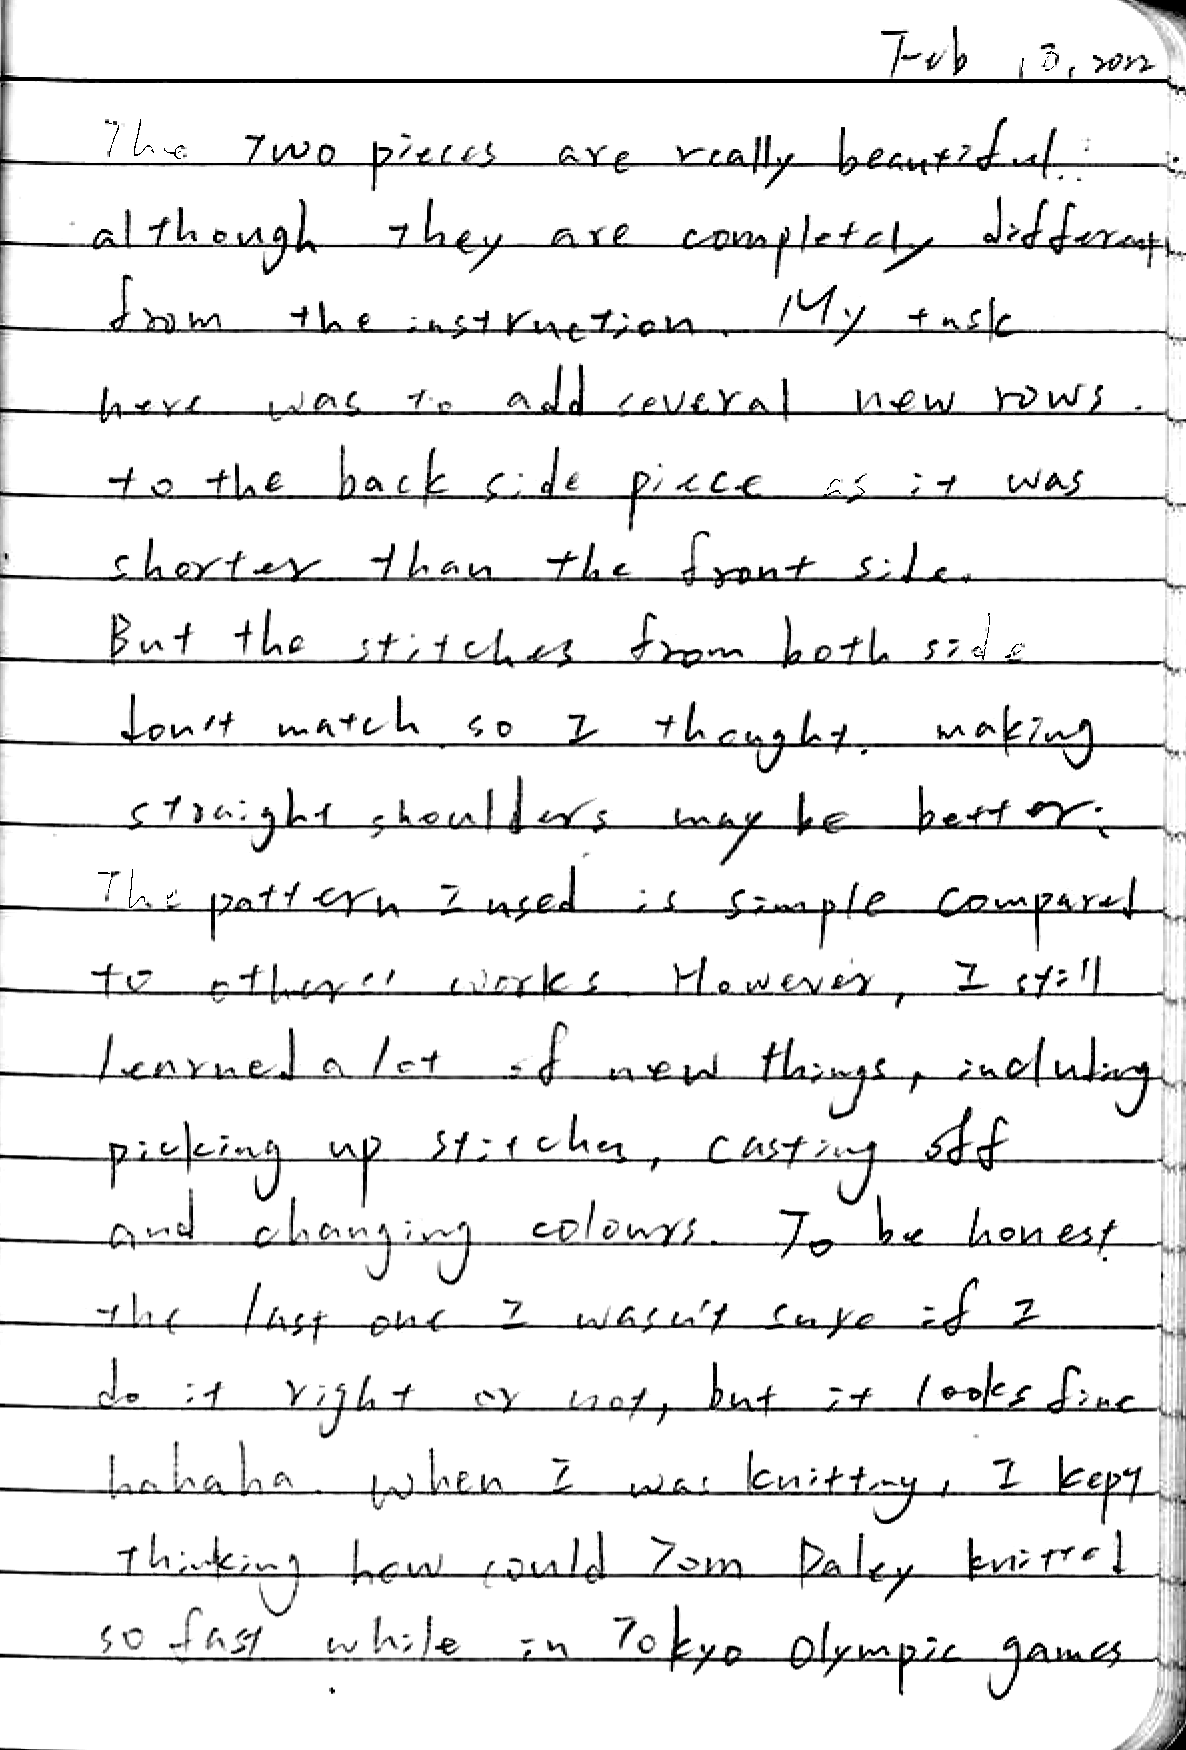 Feb 13, 2022
The two pieces are really beautiful
although they are completely different
from the instruction. My task
here was to add several new rows
to the back side piece as it was
shorter than the front side.
But the stitches from both side
don't match so I thought making
straight shoulders may be better.
The pattern I used is simple compared
to others' works. However, I still
learned a lot of new things, including
picking up stitches, casting off
and changing colours. To be honest
the last one I wasn't sure if I
do it right or not, but it looks fine
hahaha. When I was knitting, I kept
thinking how could Tom Daley knitted
so fast while in Tokyo Olympic games